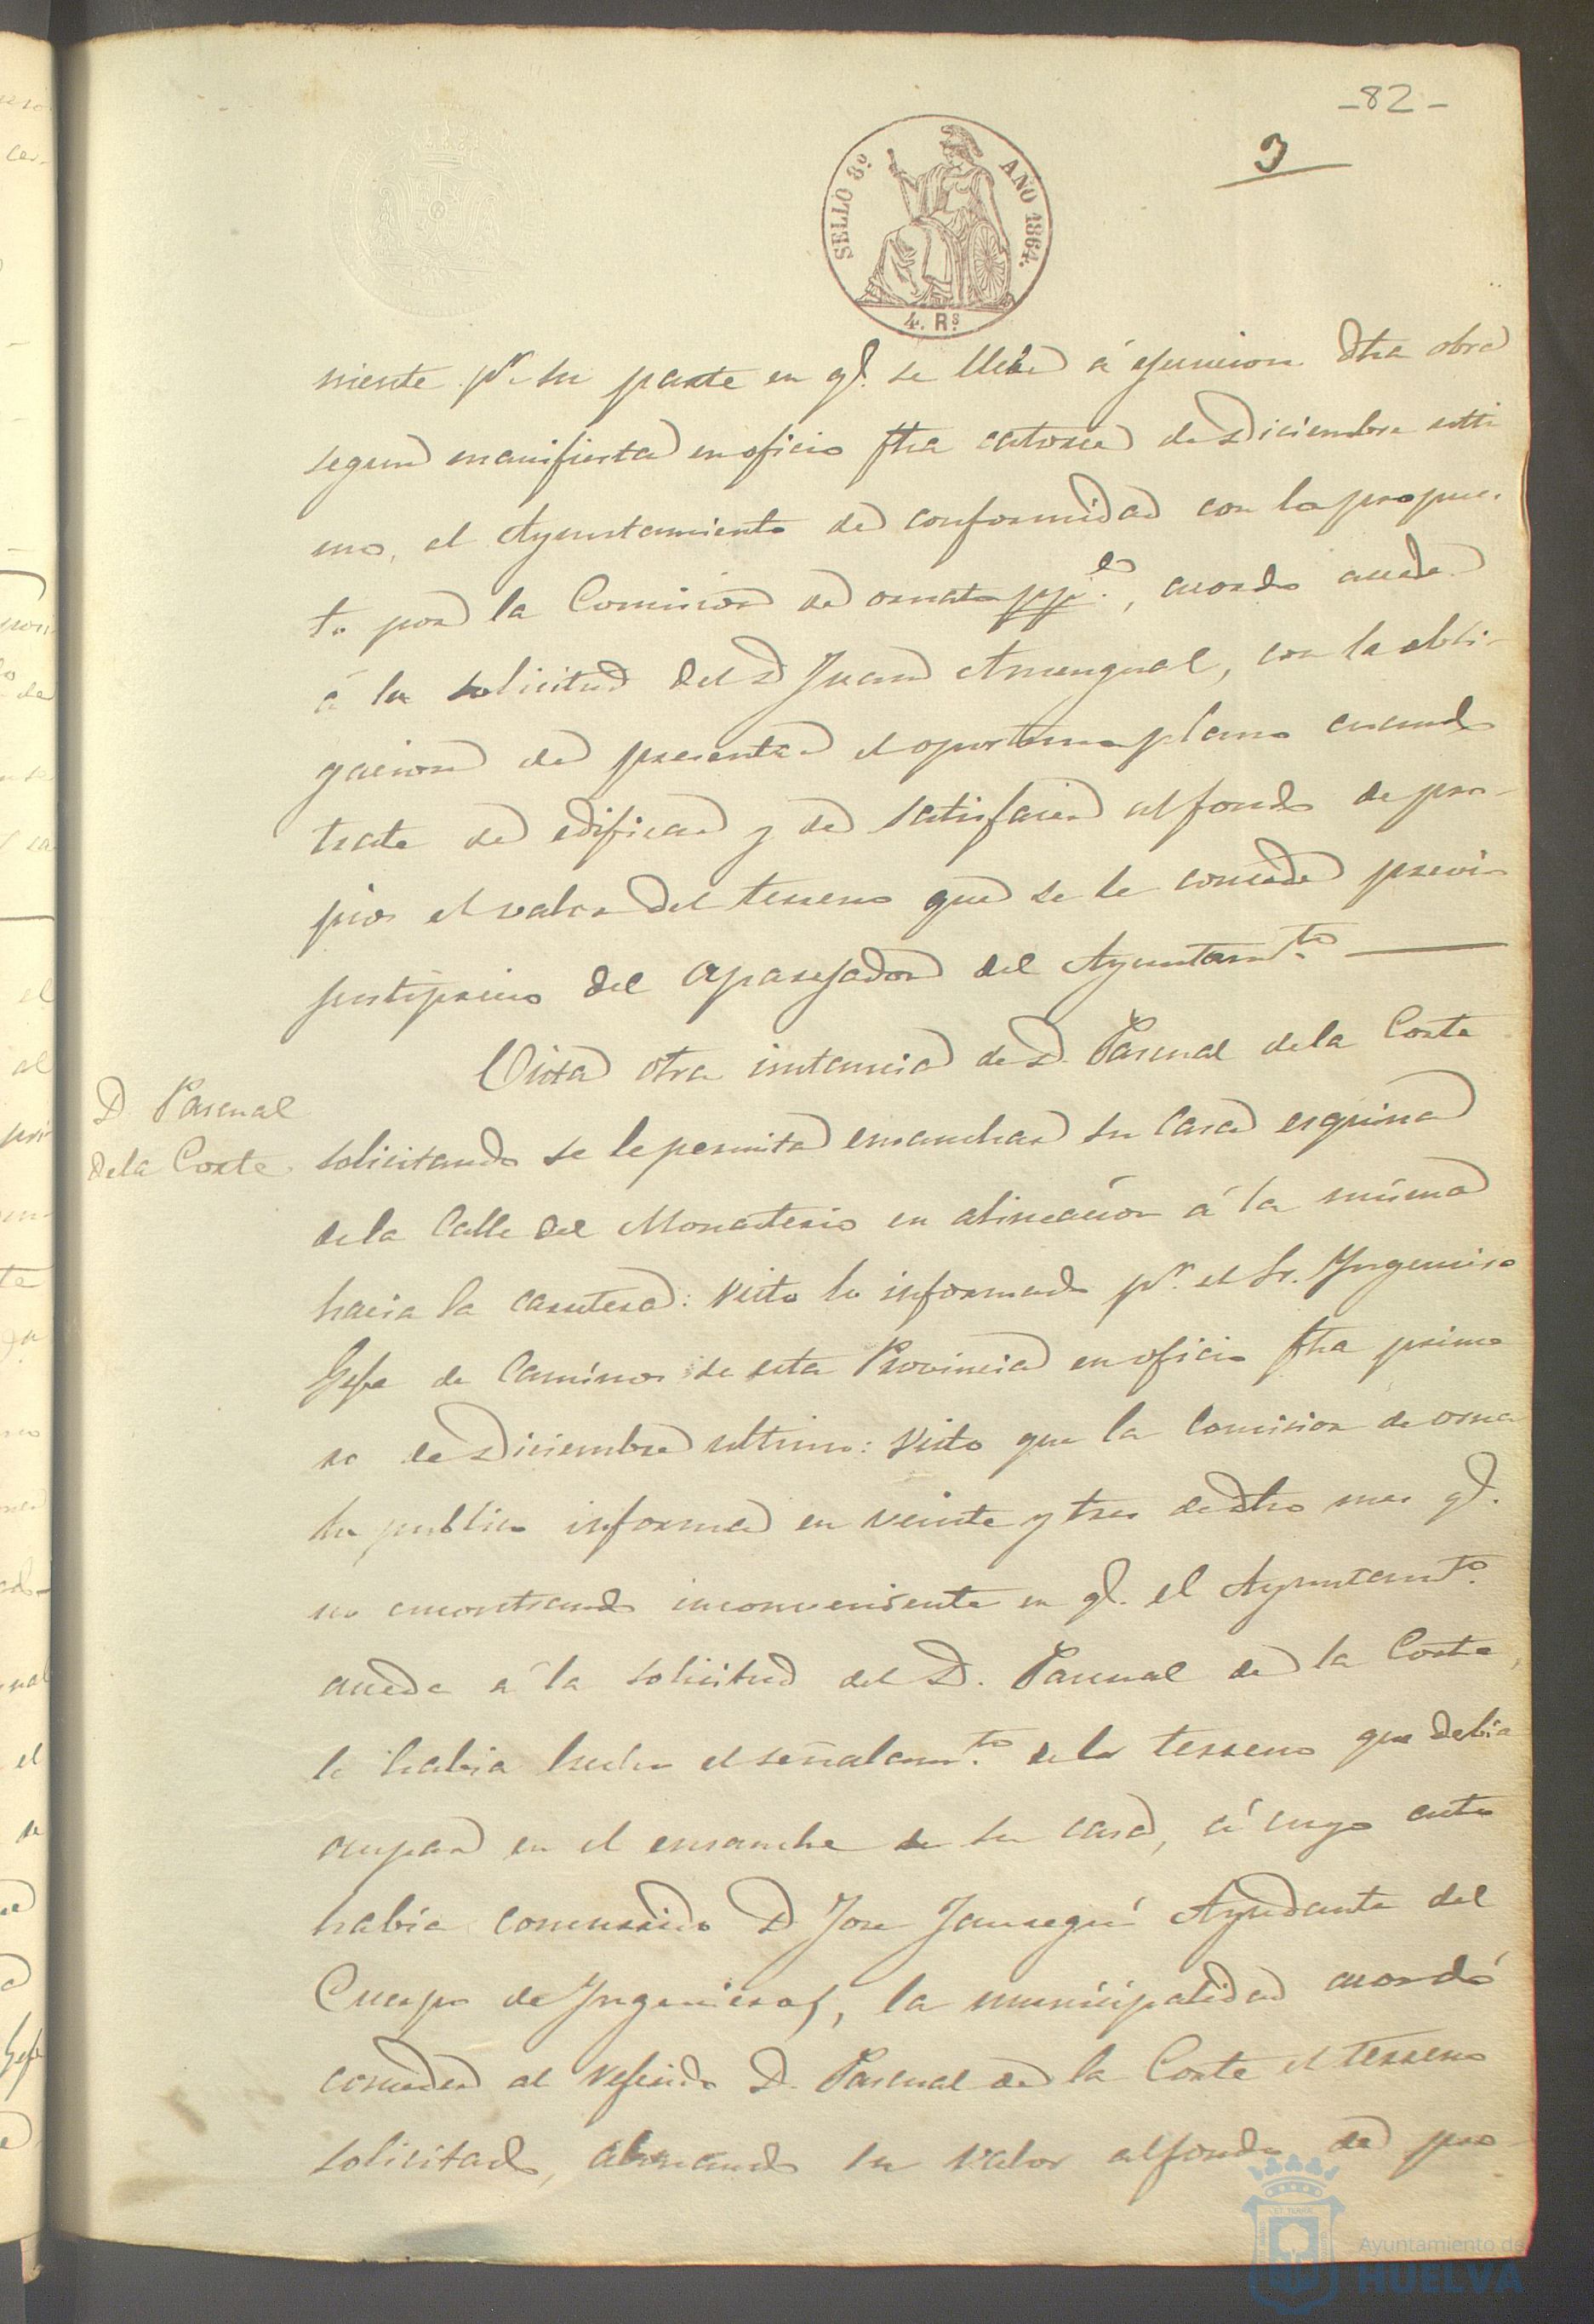 -82-
3
SELLO 8º AÑO 1864.
4. Rˢ
niente pʳ su parte en qᵉ. se lleve á ejecucion dha obra
segun manifiesta en oficio fha catorce de Diciembre ulti
mo, el Ayuntamiento de conformidad con lo propues
to por la Comision de ornato pp.ᶜᵒ, acordó acceder
á la solicitud del D Juan Amengual, con la obli-
gacion de presentar el oportuno plano cuando
trate de edificar y de satisfacer al fondo de pro-
pios el valor del terreno que se le concede previo
justiprecio del Aparejador del Ayuntamᵗᵒ
D. Pascual
dela Corte
Vista otra instancia de D. Pascual dela Corte
solicitando se le permita ensanchar su casa esquina
dela Calle del Monasterio en alineacion á la misma
hacia la carretera: visto lo informado pʳ el Sr. Yngeniero
Gefe de Caminos de esta Provincia en oficio fha prime
ro de Diciembre ultimo: Visto que la Comision de orna
to publico informa en veinte y tres de dho mes qᵉ.
no encontrando inconveniente en qᵉ. el Ayuntamᵗᵒ.
acceda á la solicitud del D. Pascual de la Corte,
le habia hecho el señalamᵗᵒ. del terreno que debia
ocupar en el ensanche de su casa, á cuyo acto
habia concurrido D Jose Jauregui Ayudante del
Cuerpo de Yngenieros, la municipalidad acordó
conceder al referido D. Pascual de la Corte el terreno
solicitado, abonando su valor al fondo de pro-
Ayuntamiento de
HUELVA